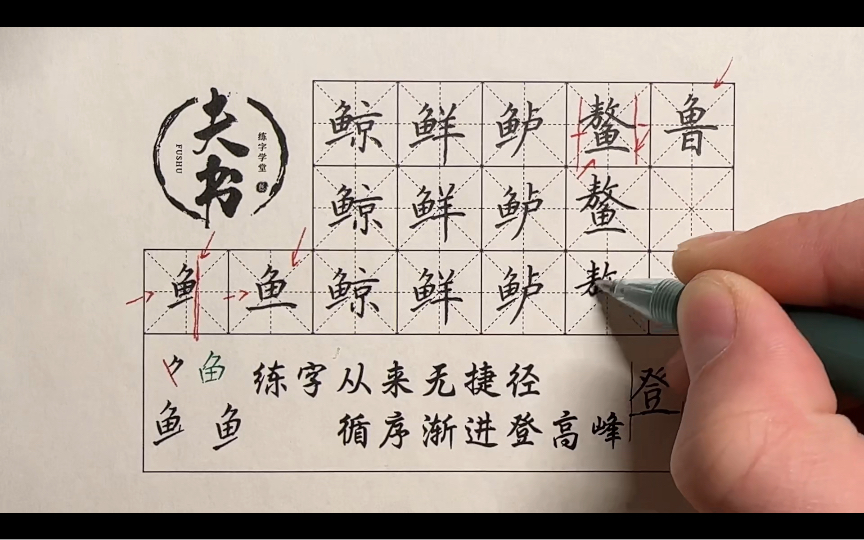 夫书
练字学堂
FUSHU
鲸 鲜 鲈 鳌 鲁
鲸 鲜 鲈 鳌
鱼 鱼 鲸 鲜 鲈 敖
鱼 练字从来无捷径
鱼 鱼 循序渐进登高峰
登